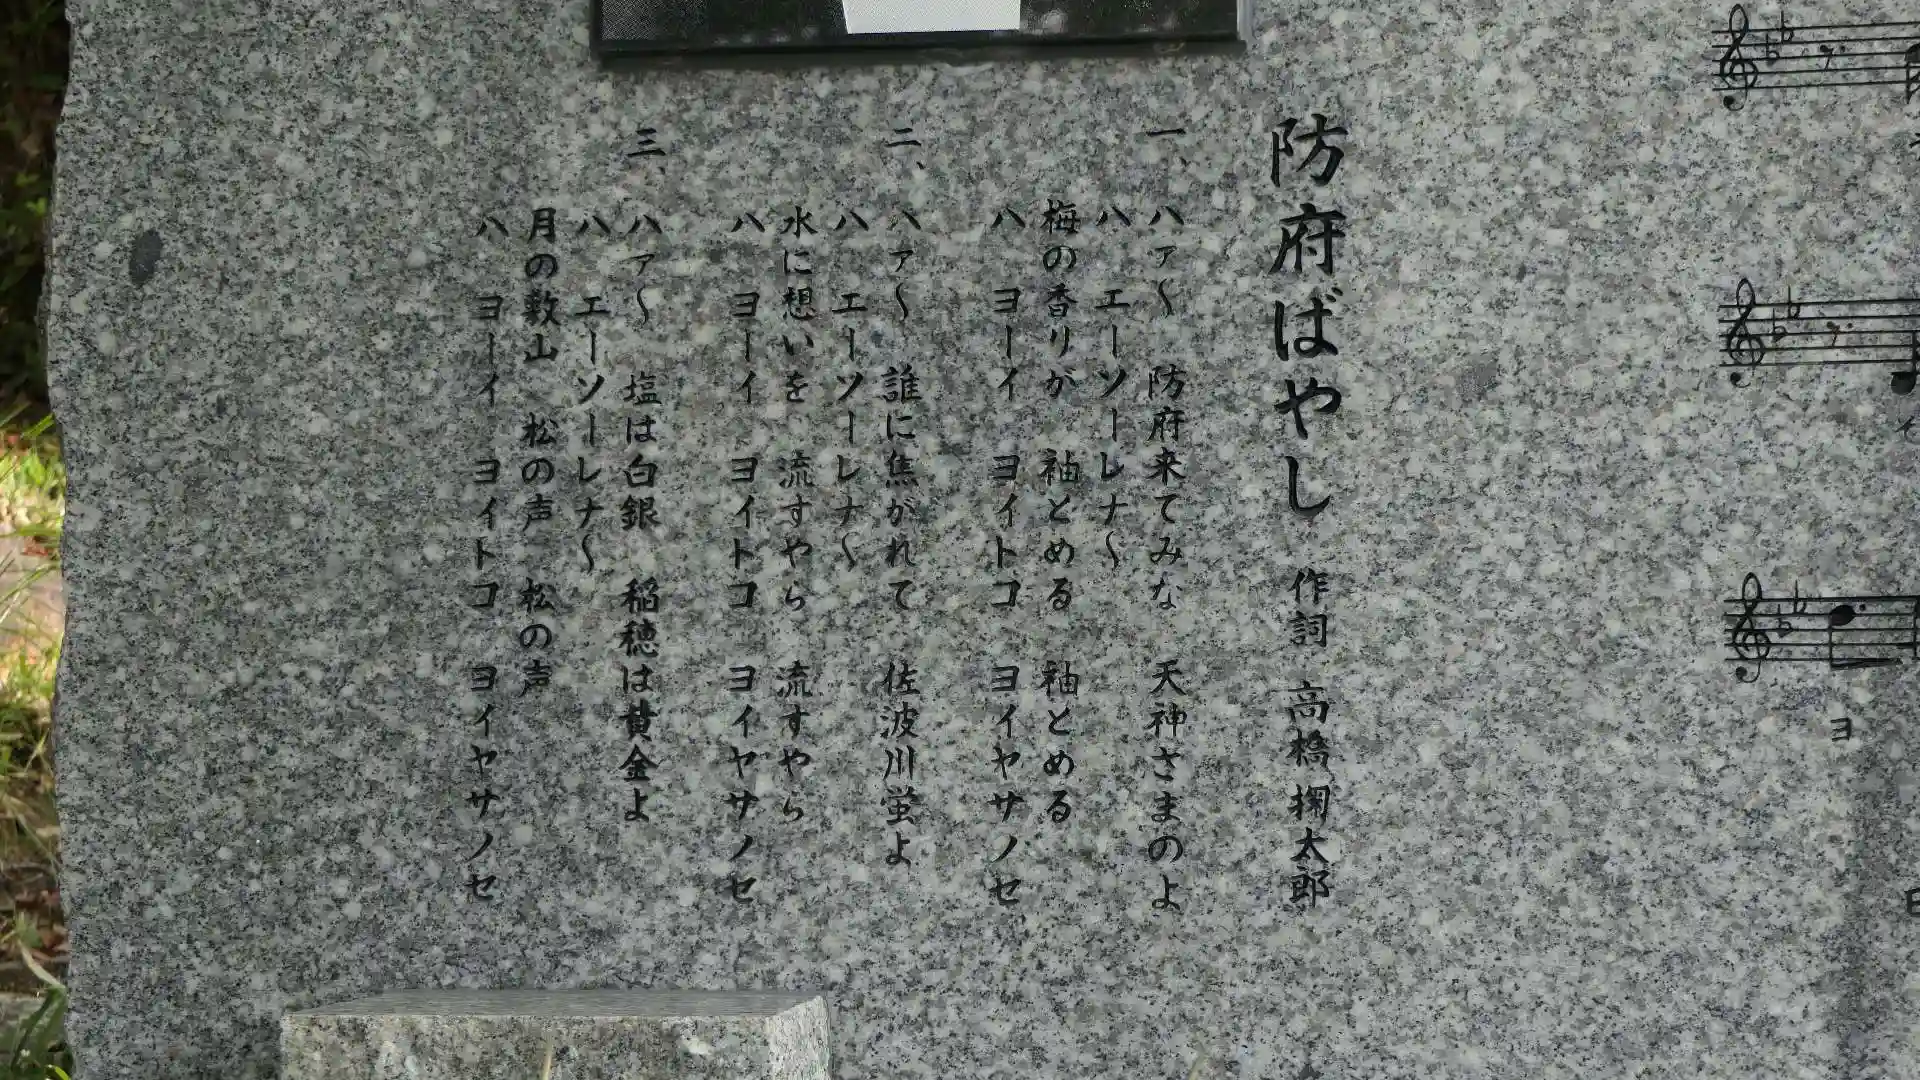 防府ばやし 作詞 高橋 掬太郎
一、ハァ〜 防府来てみな 天神さまのよ
ハ エーソーレナ〜
梅の香りが 袖とめる 袖とめる
ハ ヨーイ ヨイトコ ヨイヤサノセ
二、ハァ〜 誰に焦がれて 佐波川蛍よ
ハ エーソーレナ〜
水に想いを 流すやら 流すやら
ハ ヨーイ ヨイトコ ヨイヤサノセ
三、ハァ〜 塩は白銀 稲穂は黄金よ
ハ エーソーレナ〜
月の数山 松の声 松の声
ハ ヨーイ ヨイトコ ヨイヤサノセ
ヨ